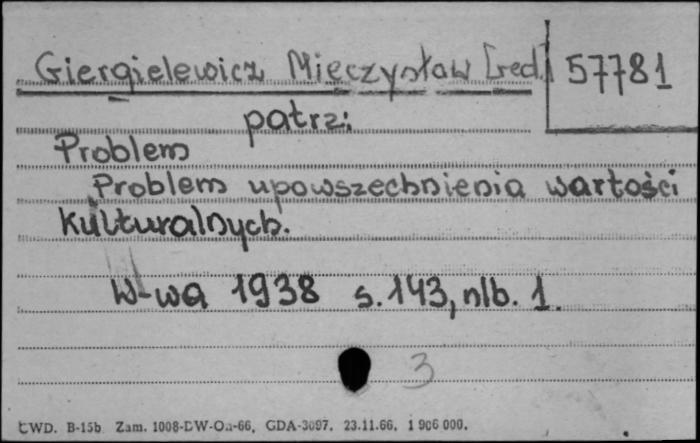 Giergielewicz Mieczysław [red.] 57781
patrz:
Problem
Problem upowszechnienia wartości
kulturalnych.
W-wa 1938 s. 143, nlb. 1.
3
CWD. B-15b Zam. 1008-DW-Oa-66, GDA-3097. 23.11.66. 1 906 000.